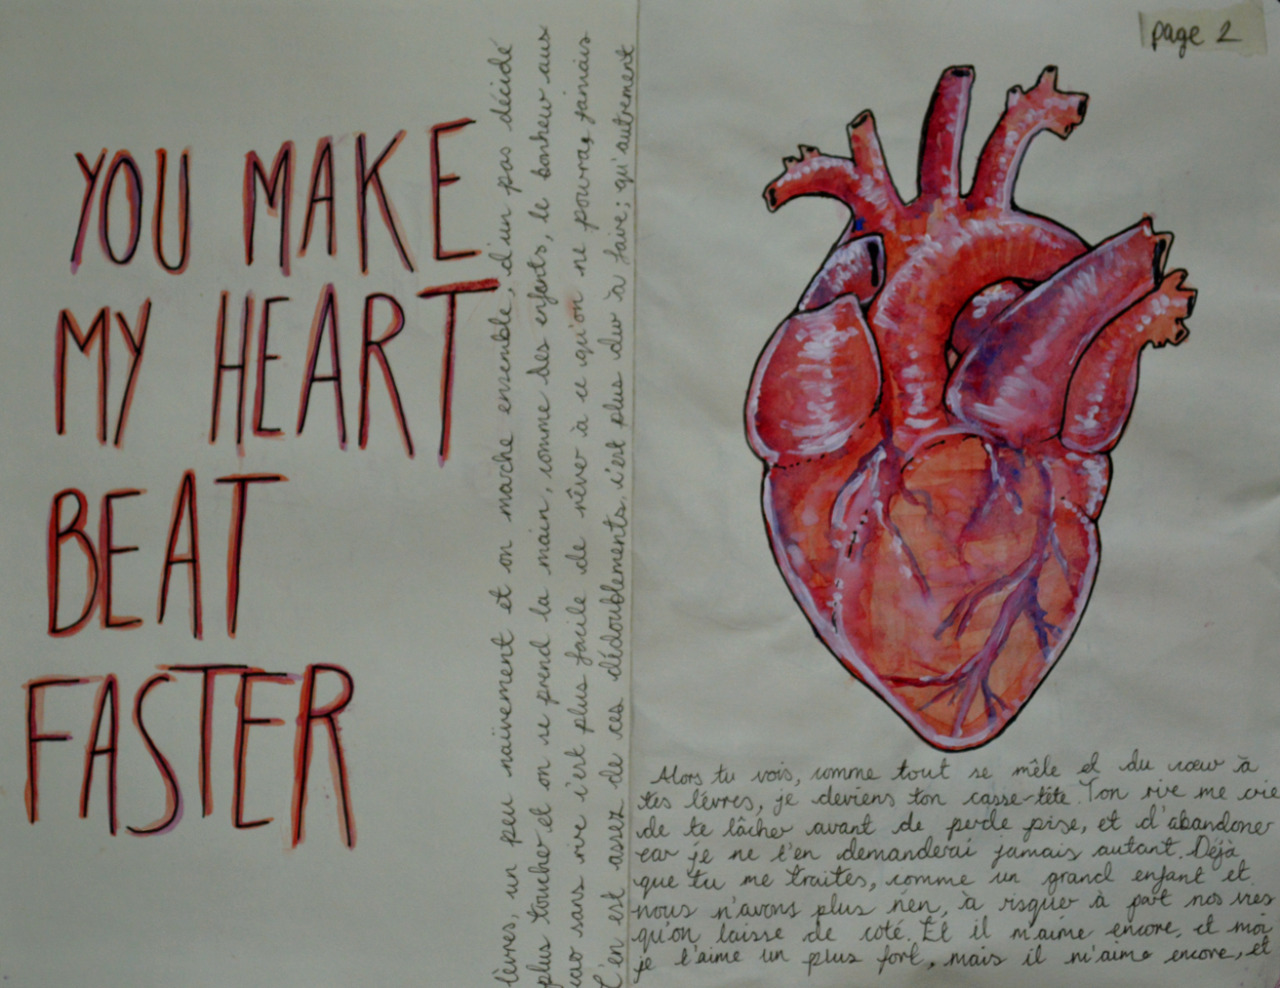 page 2
YOU MAKE
MY HEART
BEAT
FASTER
lèvres, un peu naïvement et on marche ensemble, d'un pas décidé
plus toucher et on se prend la main, comme des enfants, le bonheur aux
car sans rire c'est plus facile de rêver à ce qu'on ne pourra, jamais
L'en est assez de ces dédoublements, c'est plus dur à faire; qu'autrement
Alors tu vois, comme tout se mêle et du cœur à
tes lèvres, je deviens ton casse-tête. Ton rire me crie
de te lâcher avant de perde prise, et d'abandoner
car je ne t'en demanderai jamais autant. Déjà
que tu me traites, comme un grand enfant et
nous n'avons plus rien, à risquer à part nos vies
qu'on laisse de coté. Et il m'aime encore, et moi
je t'aime un plus fort, mais il m'aime encore, et